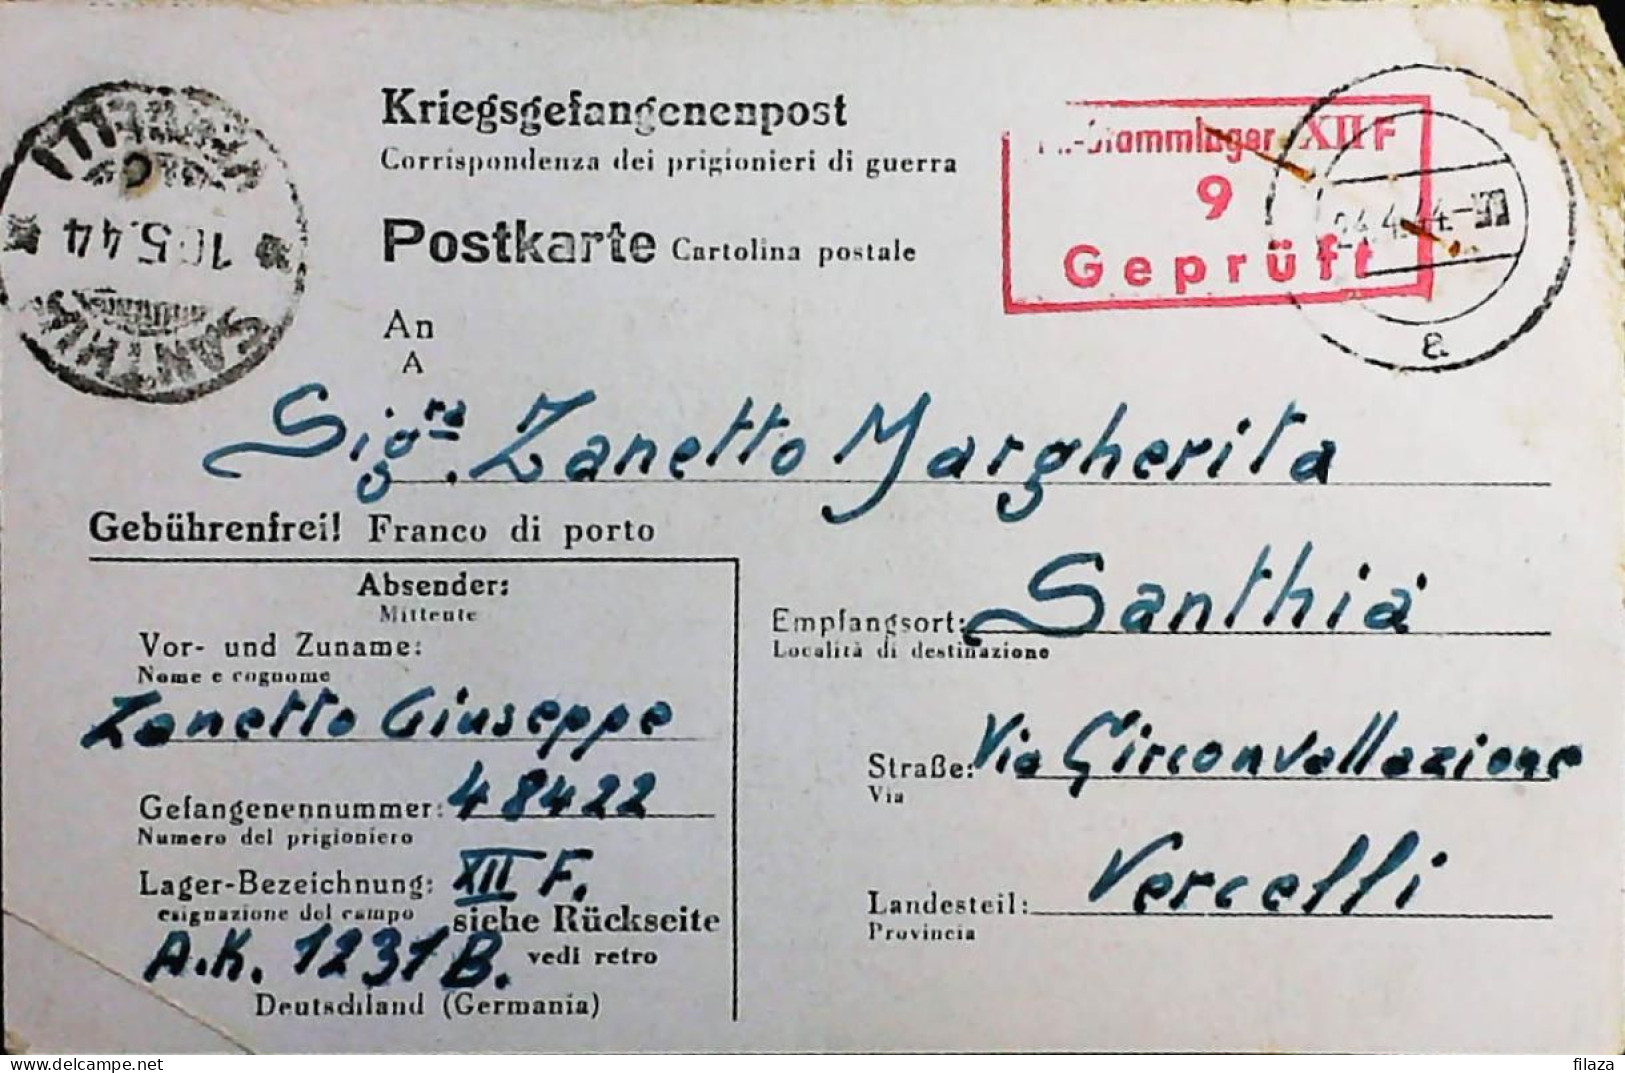 Kriegsgefangenenpost
Corrispondenza dei prigionieri di guerra
Postkarte Cartolina postale
-Stammlager XII F
9
Geprüft
24.4.44-
a
VERCELLI
10.5.44
SANTHIA
An
A
Sig.ra Zanetto Margherita
Gebührenfrei! Franco di porto
Absender:
Mittente
Vor- und Zuname:
Nome e cognome
Zanetto Giuseppe
Gefangenennummer: 48422
Numero del prigioniero
Lager-Bezeichnung: XII F.
esignazione del campo
siehe Rückseite
A.K. 1231 B. vedi retro
Deutschland (Germania)
Empfangsort: Santhià
Località di destinazione
Straße: Via Circonvallazione
Via
Landesteil: Vercelli
Provincia
filaza